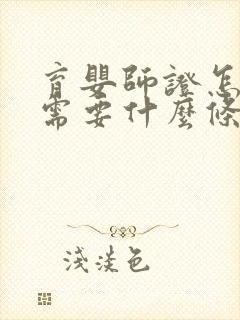 育嬰師證怎
需要什麼條
淺淡色